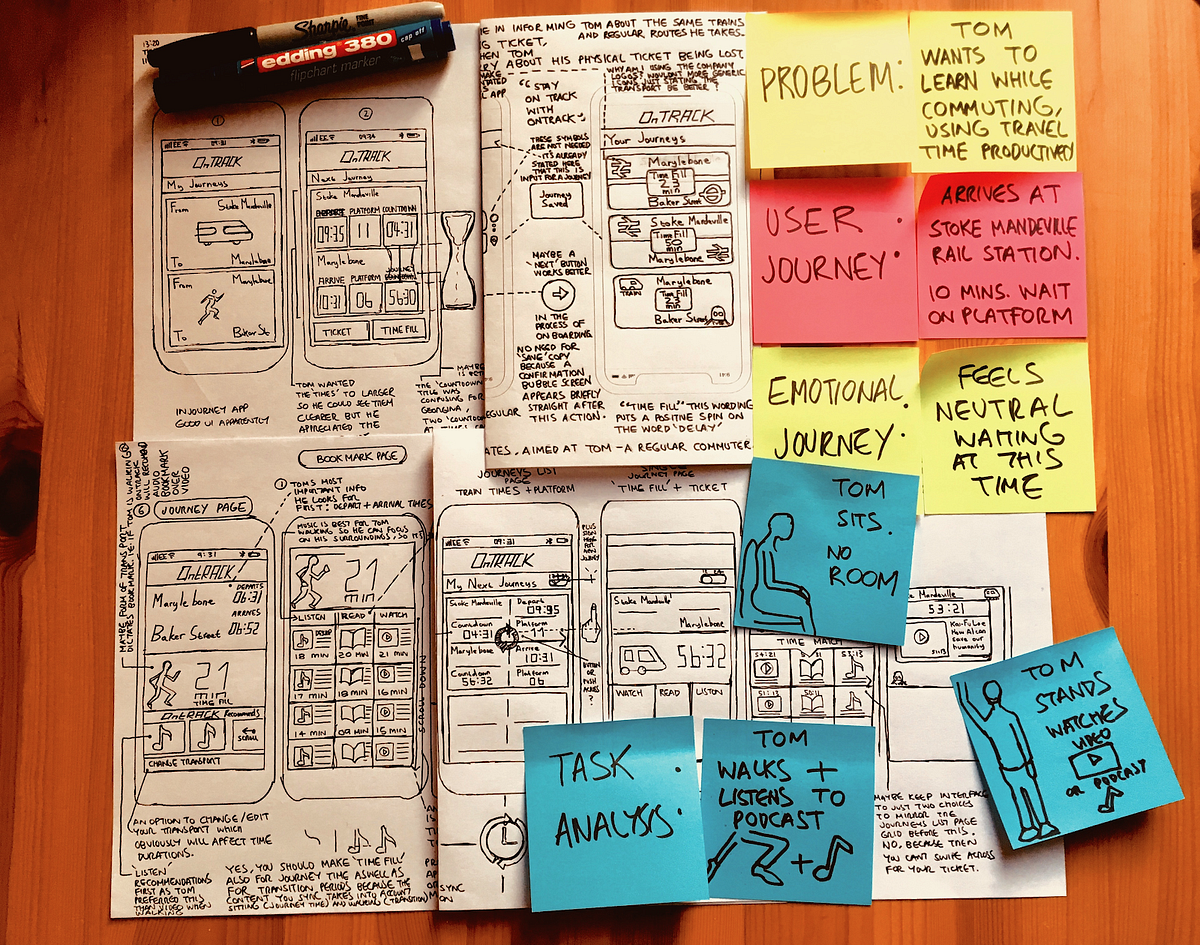 Sharpie FINE POINT
edding 380 cap off
flipchart marker
①
EE 09:31
OnTRACK
My Journeys
From Stoke Mandeville
To Marylebone
From Marylebone
To Baker St
IN JOURNEY APP
GOOD UI APPARENTLY
②
EE 09:34
OnTRACK
Next Journey
Stoke Mandeville
DEPART PLATFORM COUNTDOWN
09:35 11 04:31
Marylebone
ARRIVE PLATFORM JOURNEY COUNTDOWN
10:31 06 56:30
TICKET TIME FILL
TOM WANTED
THE 'TIMES' TO LARGER
SO HE COULD SEE THEM
CLEARER BUT HE
APPRECIATED THE
MAYBE
THE 'COUNTDOWN'
TITLE WAS
CONFUSING FOR
GEORGINA,
TWO 'COUNTDO
E IN INFORMING TOM ABOUT THE SAME TRAINS
G TICKET, AND REGULAR ROUTES HE TAKES.
HEN TOM
RY ABOUT HIS PHYSICAL TICKET BEING LOST
WHY AM I USING THE COMPANY
LOGOS? WOULDN'T MORE GENERIC
ICONS JUST STATING THE
TRANSPORT BE BETTER?
"STAY
ON TRACK
WITH
ONTRACK"
THESE SYMBOLS
ARE NOT NEEDED
- IT'S ALREADY
STATED HERE
THAT THIS IS
INPUT FOR A JOURNEY
Journey
Saved
MAYBE A
'NEXT' BUTTON
WORKS BETTER
IN THE
PROCESS OF
ON BOARDING
NO NEED FOR
'SAVE' COPY
BECAUSE A
CONFIRMATION
BUBBLE SCREEN
APPEARS BRIEFLY
STRAIGHT AFTER
THIS ACTION.
OnTRACK
Your Journeys
Marylebone
Time Fill
23
min
Baker Street
Stoke Mandeville
Time Fill
50
min
Marylebone
Marylebone
TRAIN
Time Fill
23
min
Baker Street
"TIME FILL" THIS WORDING
PUTS A POSITIVE SPIN ON
THE WORD 'DELAY'
EGULAR
ATES, AIMED AT TOM - A REGULAR COMMUTER.
PROBLEM:
TOM
WANTS TO
LEARN WHILE
COMMUTING,
USING TRAVEL
TIME PRODUCTIVELY
USER
JOURNEY:
ARRIVES AT
STOKE MANDEVILLE
RAIL STATION.
10 MINS. WAIT
ON PLATFORM
EMOTIONAL
JOURNEY:
FEELS
NEUTRAL
WAITING
AT THIS
TIME
TOM
SITS.
NO
ROOM
TOM
STANDS
WATCHES
VIDEO
OR PODCAST
TASK
ANALYSIS:
TOM
WALKS +
LISTENS TO
PODCAST
+
BOOKMARK PAGE
① TOM'S MOST
IMPORTANT INFO
HE LOOKS FOR
FIRST: DEPART + ARRIVAL TIMES
⑥ JOURNEY PAGE
MAYBE FORM OF TRANSPORT
DICTATES BOOKMARK. IE. IF TOM IS WALKING
ONTRACK
WILL RECOMMEND
AUDIO
BOOKMARK
OVER
VIDEO
EE 9:31
OnTRACK
DEPARTS
Marylebone 06:31
ARRIVES
Baker Street 06:52
21
min
TIME FILL
OnTRACK Recommends
SCROLL
CHANGE TRANSPORT
AN OPTION TO CHANGE/EDIT
YOUR TRANSPORT WHICH
OBVIOUSLY WILL AFFECT TIME
DURATIONS.
'LISTEN'
RECOMMENDATIONS
FIRST AS TOM
PREFERRED THIS
THAN VIDEO WHEN
WALKING
MUSIC IS BEST FOR TOM
WALKING SO HE CAN FOCUS
ON HIS SURROUNDINGS, SO IT'S
21
min
LISTEN READ WATCH
18 MIN 20 MIN 21 MIN
17 MIN 18 MIN 16 MIN
14 MIN 09 MIN 15 MIN
SCROLL DOWN
YES, YOU SHOULD MAKE 'TIME FILL'
ALSO FOR JOURNEY TIME AS WELL AS
FOR TRANSITION PERIODS BECAUSE THE
CONTENT YOU SYNC TAKES INTO ACCOUNT
SITTING (JOURNEY TIME) AND WALKING (TRANSITION)
SYNC
JOURNEYS LIST
PAGE
TRAIN TIMES + PLATFORM
JOURNEY PAGE
'TIME FILL' + TICKET
EE 09:31
OnTRACK
My Next Journeys
Stoke Mandeville Depart
09:35
Countdown Platform
04:31 11
Marylebone Arrive
10:31
Countdown Platform
56:32 06
PLUS
SIGN
HERE
FOR
NEW
JOURNEY
BUTTON
OR
PUSH
ACROSS
?
Stoke Mandeville
Marylebone
56:32
WATCH READ LISTEN
TIME MATCH
54:21 53:13
51:13 50:11
Mandeville
53:21
Kai-Fu Lee
How AI can
save our
humanity
MAYBE KEEP INTERFACE
TO JUST TWO CHOICES
TO MIRROR THE
JOURNEYS LIST PAGE
GRID BEFORE THIS.
NO, BECAUSE THEN
YOU CAN'T SWIPE ACROSS
FOR YOUR TICKET.